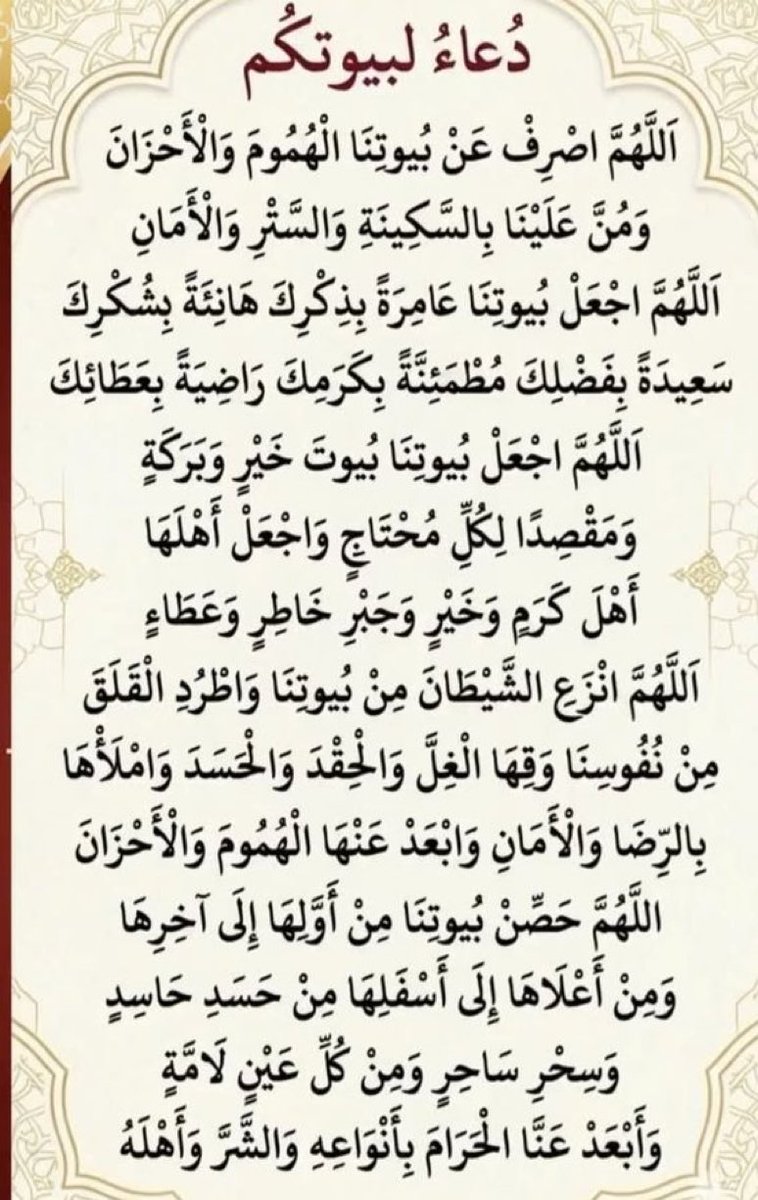 دُعاءُ لبيوتكُم
اَللَّهُمَّ اصْرِفْ عَنْ بُيوتِنَا الْهُمُومَ وَالْأَحْزَانَ
وَمُنَّ عَلَيْنَا بِالسَّكِينَةِ وَالسَّتْرِ وَالْأَمَانِ
اَللَّهُمَّ اجْعَلْ بُيوتِنَا عَامِرَةً بِذِكْرِكَ هَانِئَةً بِشُكْرِكَ
سَعِيدَةً بِفَضْلِكَ مُطْمَئِنَّةً بِكَرَمِكَ رَاضِيَةً بِعَطَائِكَ
اَللَّهُمَّ اجْعَلْ بُيوتِنَا بُيوتَ خَيْرٍ وَبَرَكَةٍ
وَمَقْصِدًا لِكُلِّ مُحْتَاجٍ وَاجْعَلْ أَهْلَهَا
أَهْلَ كَرَمٍ وَخَيْرٍ وَجَبْرِ خَاطِرٍ وَعَطَاءٍ
اَللَّهُمَّ انْزَعِ الشَّيْطَانَ مِنْ بُيوتِنَا وَاطْرُدِ الْقَلَقَ
مِنْ نُفُوسِنَا وَقِهَا الْغِلَّ وَالْحِقْدَ وَالْحَسَدَ وَامْلَأْهَا
بِالرِّضَا وَالْأَمَانِ وَابْعَدْ عَنْهَا الْهُمُومَ وَالْأَحْزَانَ
اللَّهُمَّ حَصِّنْ بُيوتِنَا مِنْ أَوَّلِهَا إِلَى آخِرِهَا
وَمِنْ أَعْلَاهَا إِلَى أَسْفَلِهَا مِنْ حَسَدِ حَاسِدٍ
وَسِحْرِ سَاحِرٍ وَمِنْ كُلِّ عَيْنٍ لَامَّةٍ
وَأَبْعَدْ عَنَّا الْحَرَامَ بِأَنْوَاعِهِ وَالشَّرَّ وَأَهْلَهُ